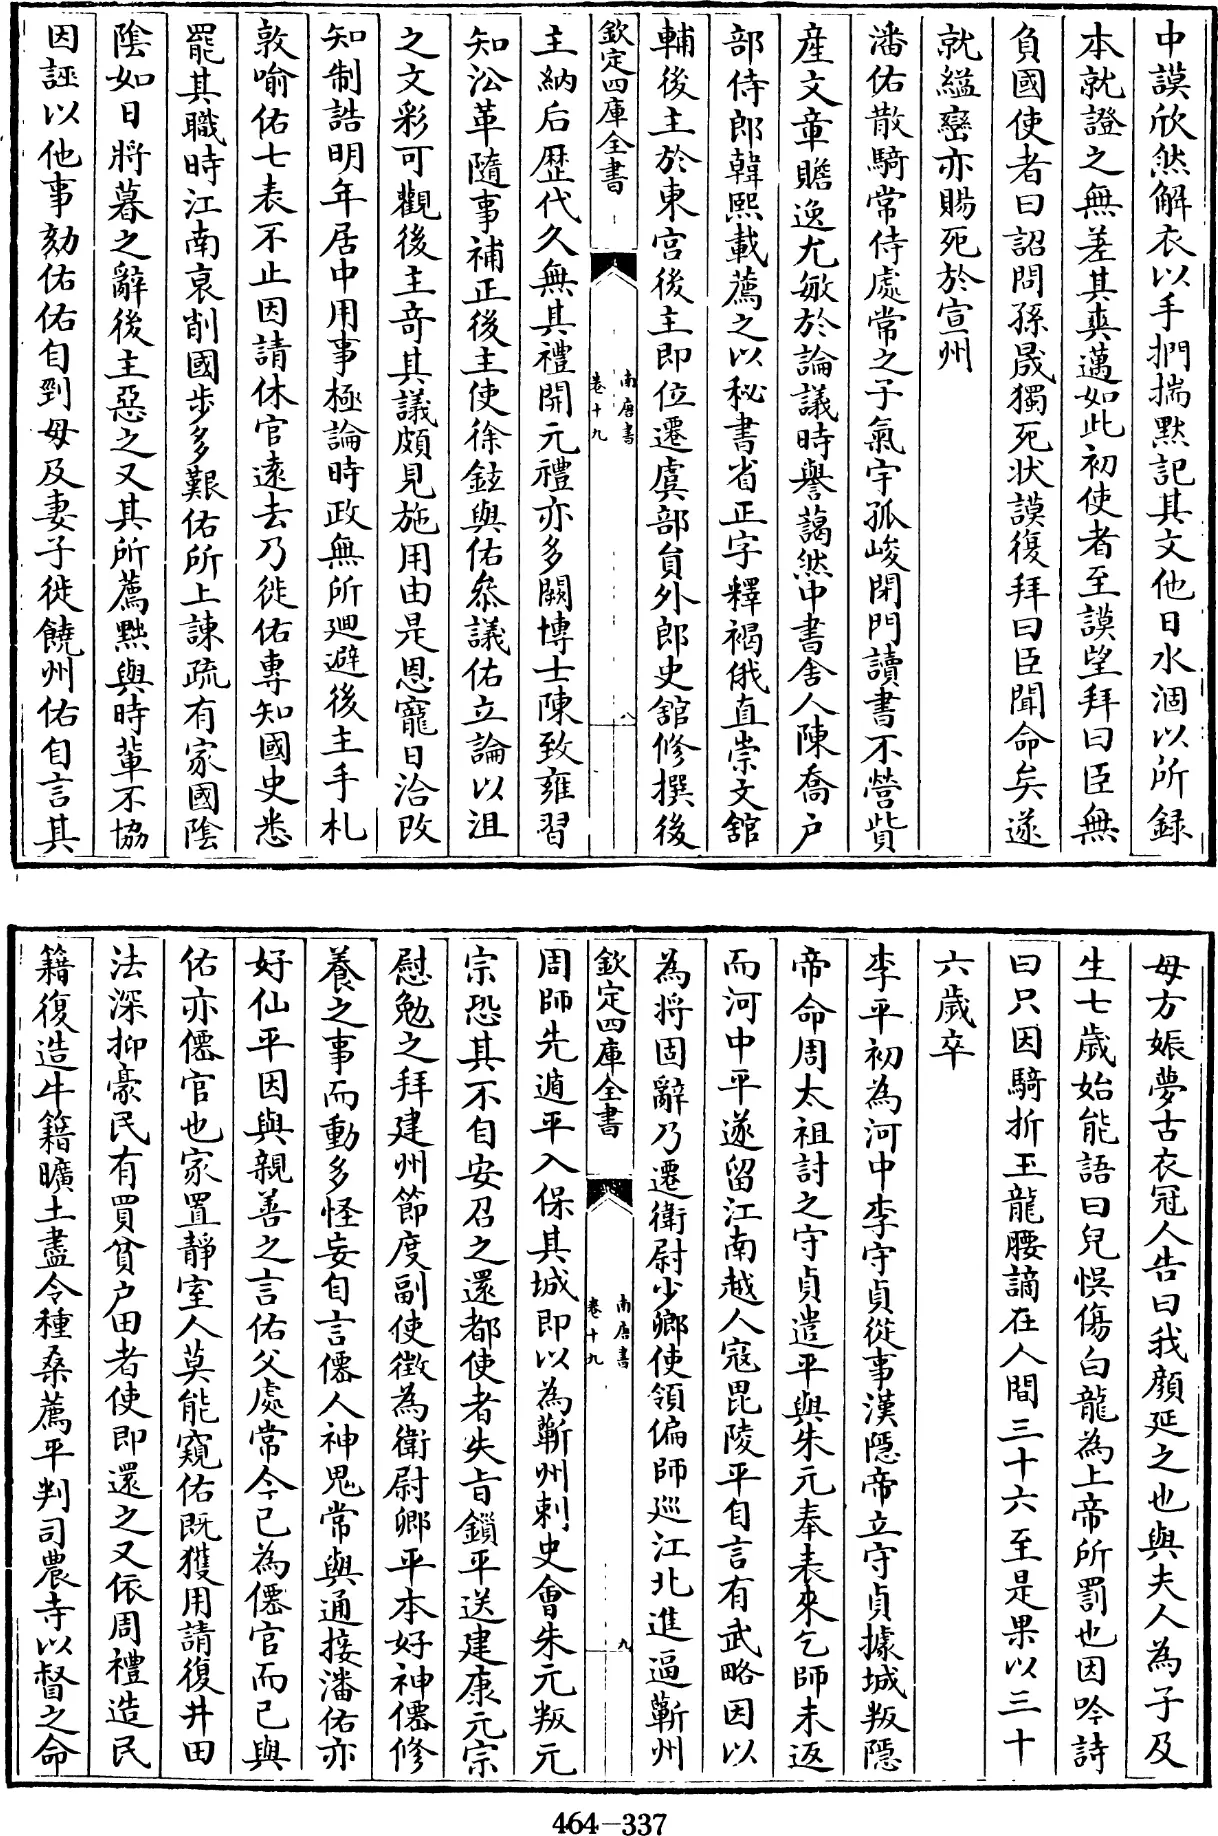 中謨欣然解衣以手捫揣黙記其文他日水涸以所録
本就證之無差其爽邁如此初使者至謨望拜曰臣無
負國使者曰詔問孫晟獨死状謨復拜曰臣聞命矣遂
就縊巒亦賜死於宣州
潘佑散騎常侍處常之子氣宇孤峻閉門讀書不營貲
産文章贍逸尤敏於論議時譽藹然中書舎人陳喬户
部侍郎韓熙載薦之以秘書省正字釋褐俄直崇文舘
輔後主於東宫後主即位遷虞部員外郎史舘修撰後
欽定四庫全書
南唐書
卷十九
八
主納后歴代久無其禮開元禮亦多闕博士陳致雍習
知沿革隨事補正後主使徐鉉與佑叅議佑立論以沮
之文彩可觀後主竒其議頗見施用由是恩寵日洽改
知制誥明年居中用事極論時政無所廻避後主手札
敦喻佑七表不止因請休官逺去乃徙佑専知國史悉
罷其職時江南衰削國步多艱佑所上諫疏有家國隂
隂如日將暮之辭後主惡之又其所薦黜與時輩不協
因誣以他事劾佑佑自剄母及妻子徙饒州佑自言其
母方娠夢古衣冠人告曰我顔延之也與夫人為子及
生七歲始能語曰兒悞傷白龍為上帝所罰也因吟詩
曰只因騎折玉龍腰謫在人間三十六至是果以三十
六歲卒
李平初為河中李守貞從事漢隱帝立守貞據城叛隱
帝命周太祖討之守貞遣平與朱元奉表來乞師未返
而河中平遂留江南越人寇毘陵平自言有武略因以
為將固辭乃遷衛尉少卿使領偏師廵江北進逼蘄州
欽定四庫全書
南唐書
卷十九
九
周師先遁平入保其城即以為蘄州刺史會朱元叛元
宗恐其不自安召之還都使者失㫖鎖平送建康元宗
慰勉之拜建州節度副使徴為衛尉卿平本好神僊修
養之事而動多怪妄自言僊人神鬼常與通接潘佑亦
好仙平因與親善之言佑父處常今已為僊官而已與
佑亦僊官也家置靜室人莫能窺佑既獲用請復井田
法深抑豪民有買貧户田者使即還之又依周禮造民
籍復造牛籍曠土盡令種桑薦平判司農寺以督之命
464-337